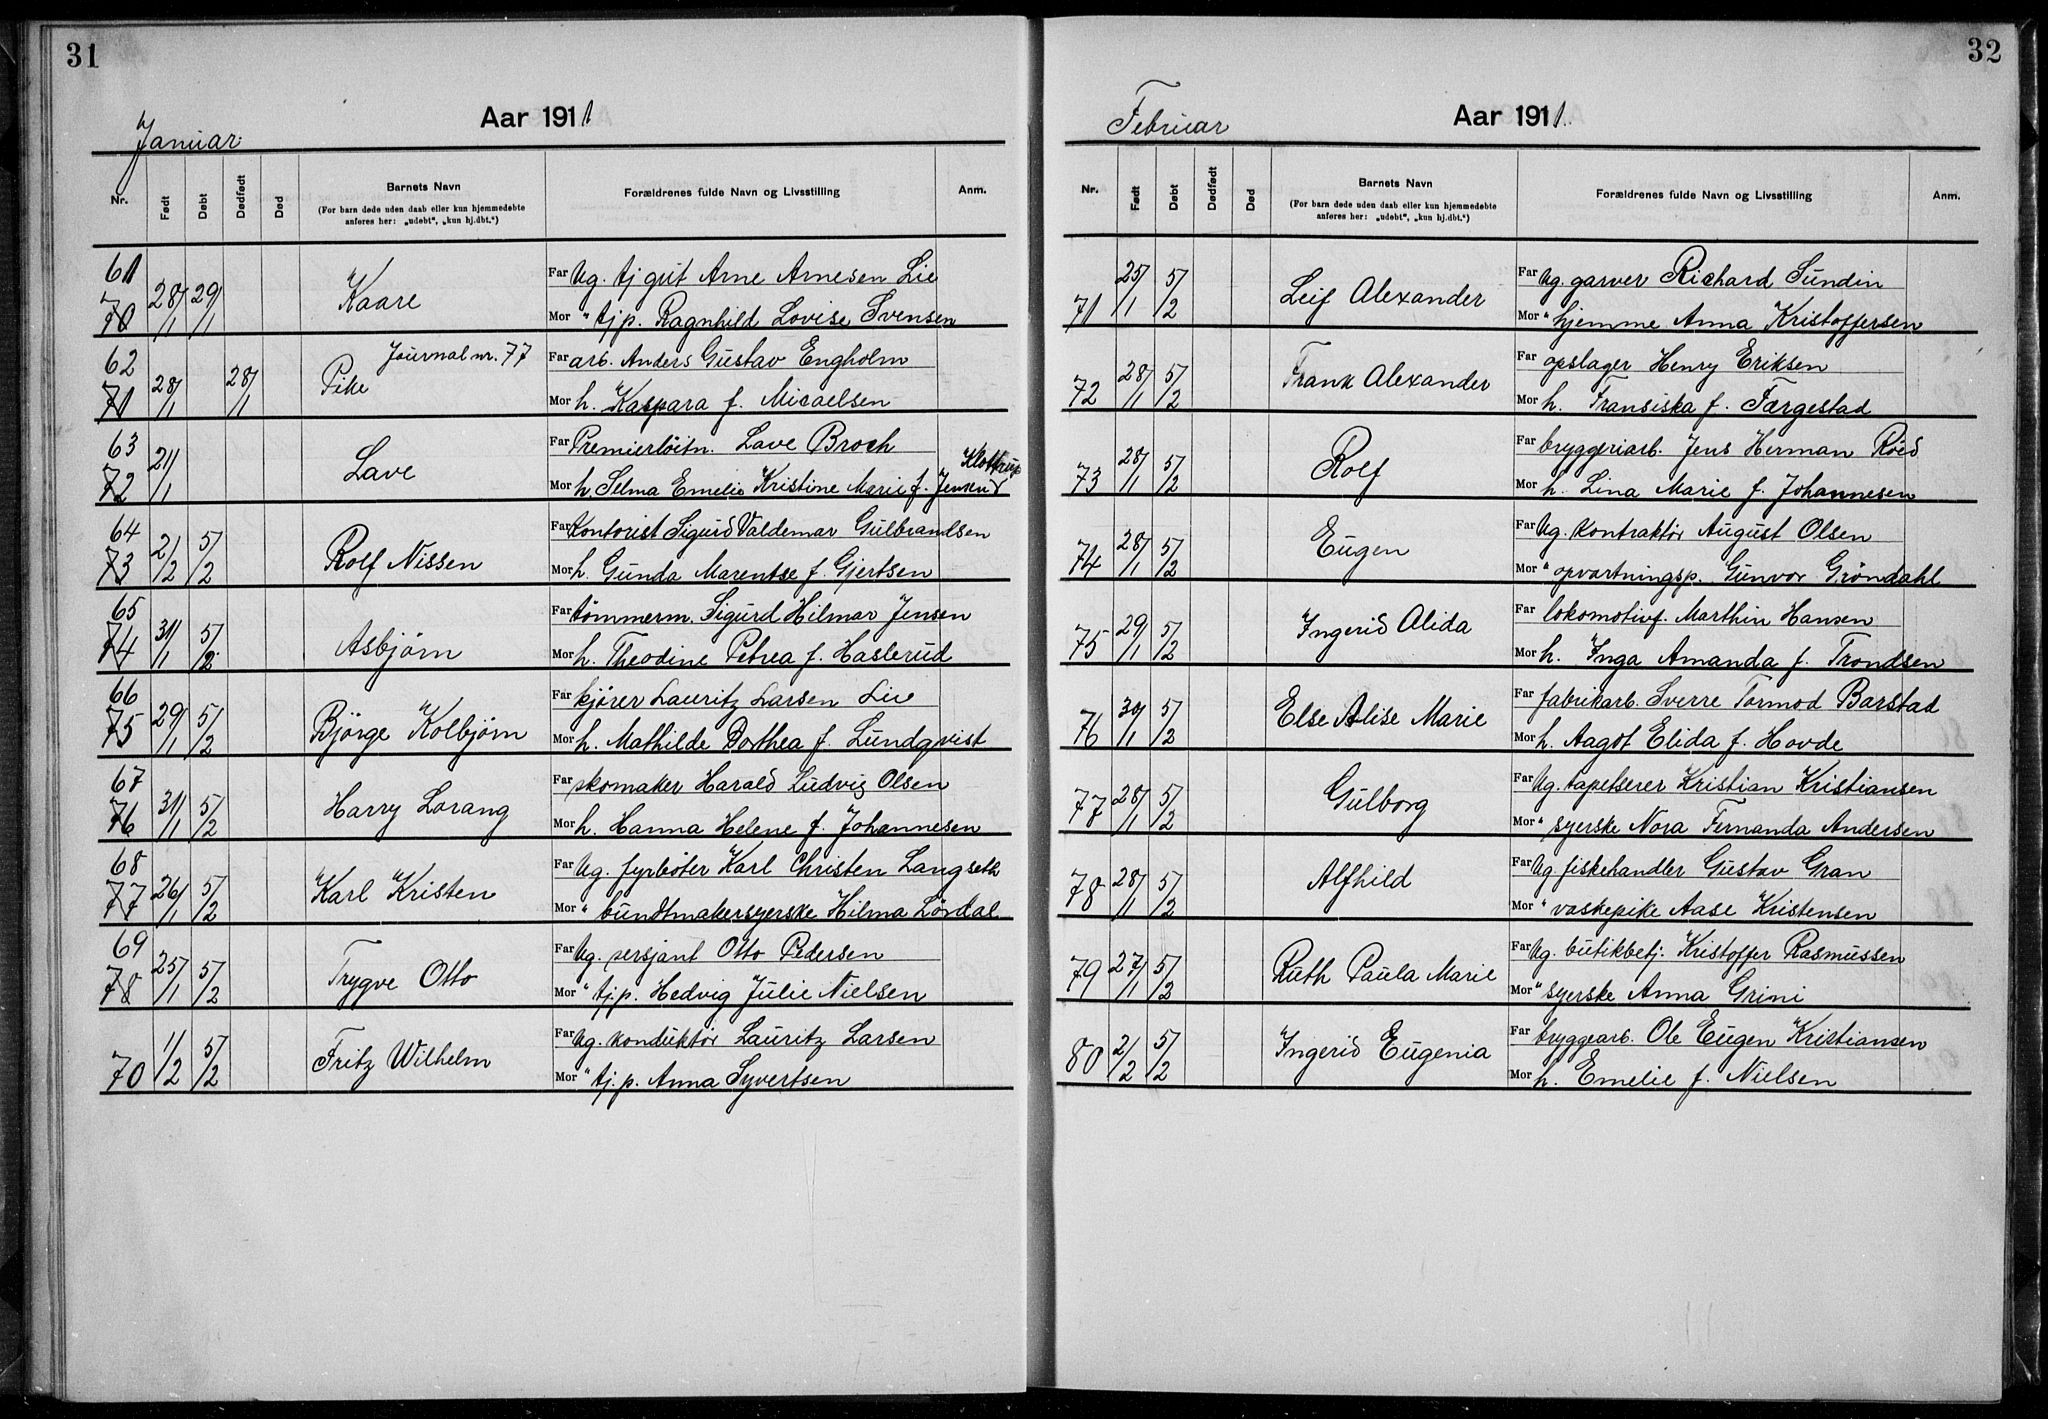 31
Januar.
Aar 1911
Nr. Født Døbt Dødfødt Død Barnets Navn (For barn døde uden daab eller kun hjemmedøbte anføres her: „udøbt“, „kun hj.dbt.“) Forældrenes fulde Navn og Livsstilling Anm.
61 Far Ug. tj gut Arne Arnesen Lie
70 28/1 29/1 Kaare Mor " tj.p. Ragnhild Lovise Svensen
62 Journal nr. 77 Far arb. Anders Gustav Engholm
71 28/1 28/1 Pike Mor h. Kaspara f. Micaelsen
63 Far Premierlöitn. Lave Broch
72 21/1 Lave Mor h. Selma Emelie Kristine Marie f. Jensen Klottrup
64 Far Kontorist Sigurd Valdemar Gulbrandsen
73 2/2 5/2 Rolf Nissen Mor h. Gunda Marentse f. Gjertsen
65 Far tömmerm. Sigurd Hilmar Jensen
74 31/1 5/2 Asbjørn Mor h. Theodine Petrea f. Haslerud
66 Far kjörer Lauritz Larsen Lie
75 29/1 5/2 Björge Kolbjörn Mor h. Mathilde Dorthea f. Lundqvist
67 Far skomaker Harald Ludvig Olsen
76 31/1 5/2 Harry Lorang Mor h. Hanna Helene f. Johannesen
68 Far Ug. fyrböter Karl Christen Langseth
77 26/1 5/2 Karl Kristen Mor " bundtmakersyerske Hilma Lördal
69 Far Ug. sersjant Otto Pedersen
78 25/1 5/2 Trygve Otto Mor " tj.p. Hedvig Julie Nielsen
Far Ug. konduktör Lauritz Larsen
70 1/2 5/2 Fritz Wilhelm Mor " tj.p. Anna Syvertsen
32
Februar
Aar 1911.
Nr. Født Døbt Dødfødt Død Barnets Navn (For barn døde uden daab eller kun hjemmedøbte anføres her: „udøbt“, „kun hj.dbt.“) Forældrenes fulde Navn og Livsstilling Anm.
Far Ug. garver Richard Sundin
71 25/1 5/2 Leif Alexander Mor " hjemme Anna Kristoffersen
Far opslager Henry Eriksen
72 28/1 5/2 Frank Alexander Mor h. Fransiska f. Færgestad
Far bryggeriarb. Jens Herman Röed
73 28/1 5/2 Rolf Mor h. Lina Marie f. Johannesen
Far Ug. kontraktör August Olsen
74 28/1 5/2 Eugen Mor " opvartningsp. Gunvor Gröndahl
Far lokomotivf. Marthin Hansen
75 29/1 5/2 Ingerid Alida Mor h. Inga Amanda f. Trondsen
Far fabrikarb. Sverre Tormod Barstad
76 30/1 5/2 Else Alise Marie Mor h. Aagot Elida f. Hovde
Far Ug. tapetserer Kristian Kristiansen
77 28/1 5/2 Gulborg Mor " syerske Nora Fernanda Andersen
Far Ug. fiskehandler Gustav Gran
78 28/1 5/2 Alfhild Mor " vaskepike Aase Kristensen
Far Ug. butikbetj. Kristoffer Rasmussen
79 27/1 5/2 Ruth Paula Marie Mor " syerske Anna Grini
Far bryggearb. Ole Eugen Kristiansen
80 2/2 5/2 Ingerid Eugenia Mor h. Emelie f. Nielsen